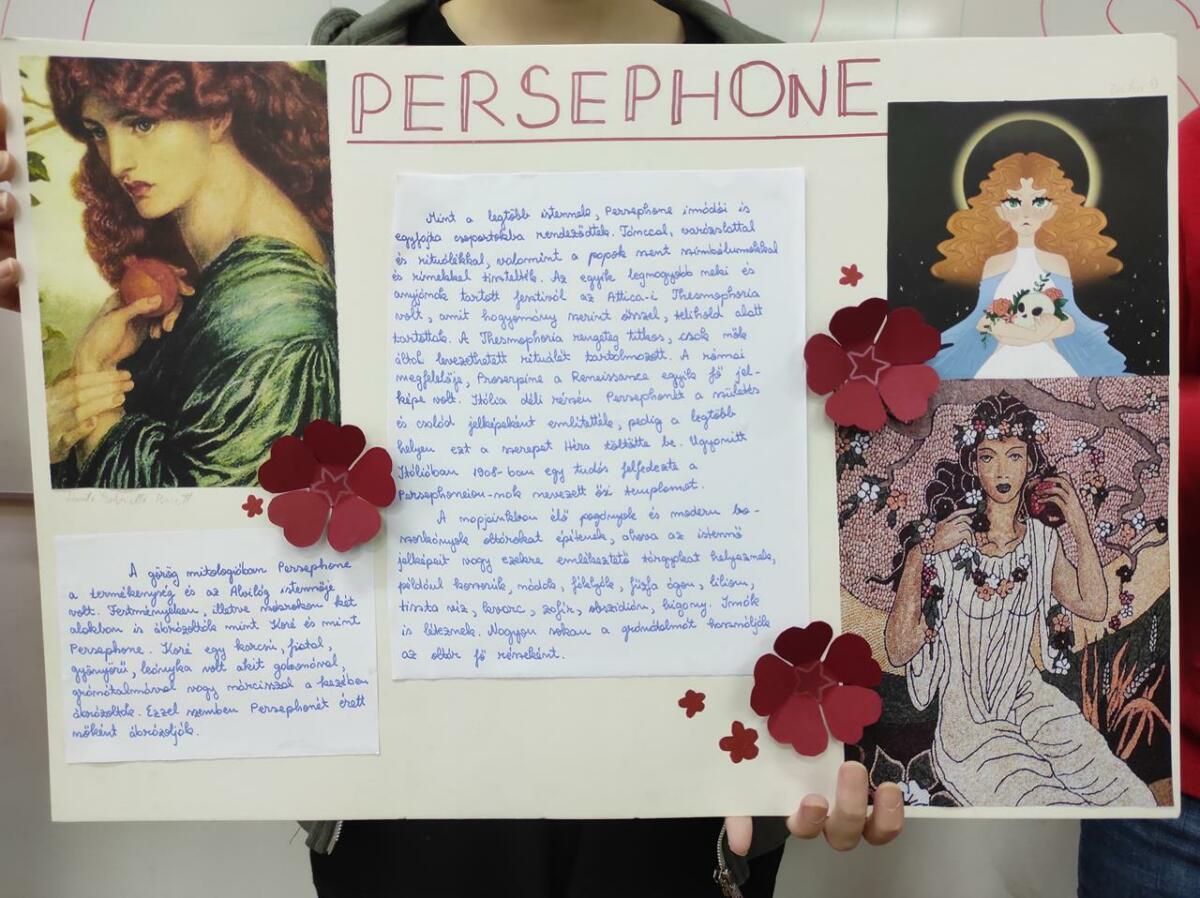 PERSEPHONE
Mint a legtöbb istennek, Persephone imádói is
egyfajta csoportokba rendeződtek. Tánccal, varázslattal
és rituálékkal, valamint a papok szent szimbólumokkal
és rímekkel tisztelték. Az egyik legnagyobb neki és
anyjának tartott fesztivál az Attica-i Thesmophoria
volt, amit hagyomány szerint ősszel, telihold alatt
tartottak. A Thesmophoria rengeteg titkos, csak nők
által levezethetett rituálét tartalmazott. A római
megfelelője, Proserpine a Renaissance egyik fő jel-
képe volt. Itália déli részén Persephonét a születés
és család jelképeként említették, pedig a legtöbb
helyen ezt a szerepet Héra töltötte be. Ugyanitt
Itáliában 1908-ban egy tudós felfedezte a
Persephoneion-nak nevezett ősi templomot.
A napjainkban élő pogányok és modern bo-
szorkányok oltárokat építenek, ahova az istennő
jelképeit vagy ezekre emlékeztető tárgyakat helyeznek,
például koszorúk, nádak, fáklyák, fűzfa ágon, liliom,
tiszta víz, kvarc, zafír, obszidián, higany. Imák
is léteznek. Nagyon sokan a gránátalmát használják
az oltár fő részeként.
A görög mitológiában Persephone
a termékenység és az Alvilág istennője
volt. Festményeken, illetve szobrokon két
alakban is ábrázolták mint Koré és mint
Persephone. Koré egy karcsú, fiatal,
gyönyörű, leányka volt akit gabonával,
gránátalmával vagy nárcisszal a kezében
ábrázoltak. Ezzel szemben Persephonét érett
nőként ábrázolják.